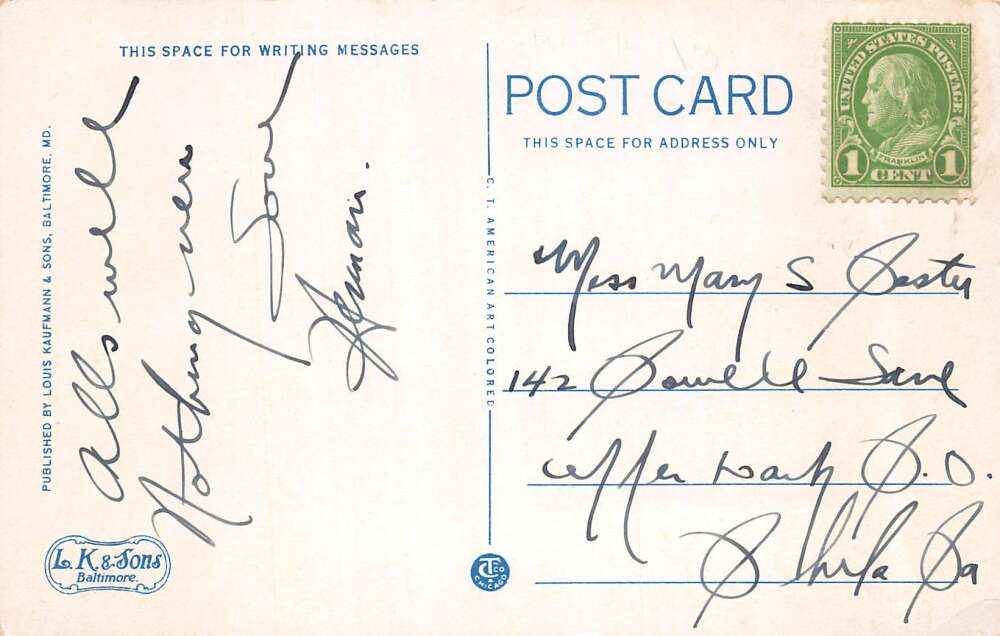 THIS SPACE FOR WRITING MESSAGES
PUBLISHED BY LOUIS KAUFMANN & SONS, BALTIMORE, MD.
Alls well
Nothing new
L. K. & Sons
Baltimore.
C. T. AMERICAN ART COLORED
CT Co
CHICAGO
POST CARD
THIS SPACE FOR ADDRESS ONLY
UNITED STATES POSTAGE
FRANKLIN
1 CENT 1
Miss Mary S
142 Powell Lane
Upper Darby P.O.
Phila Pa